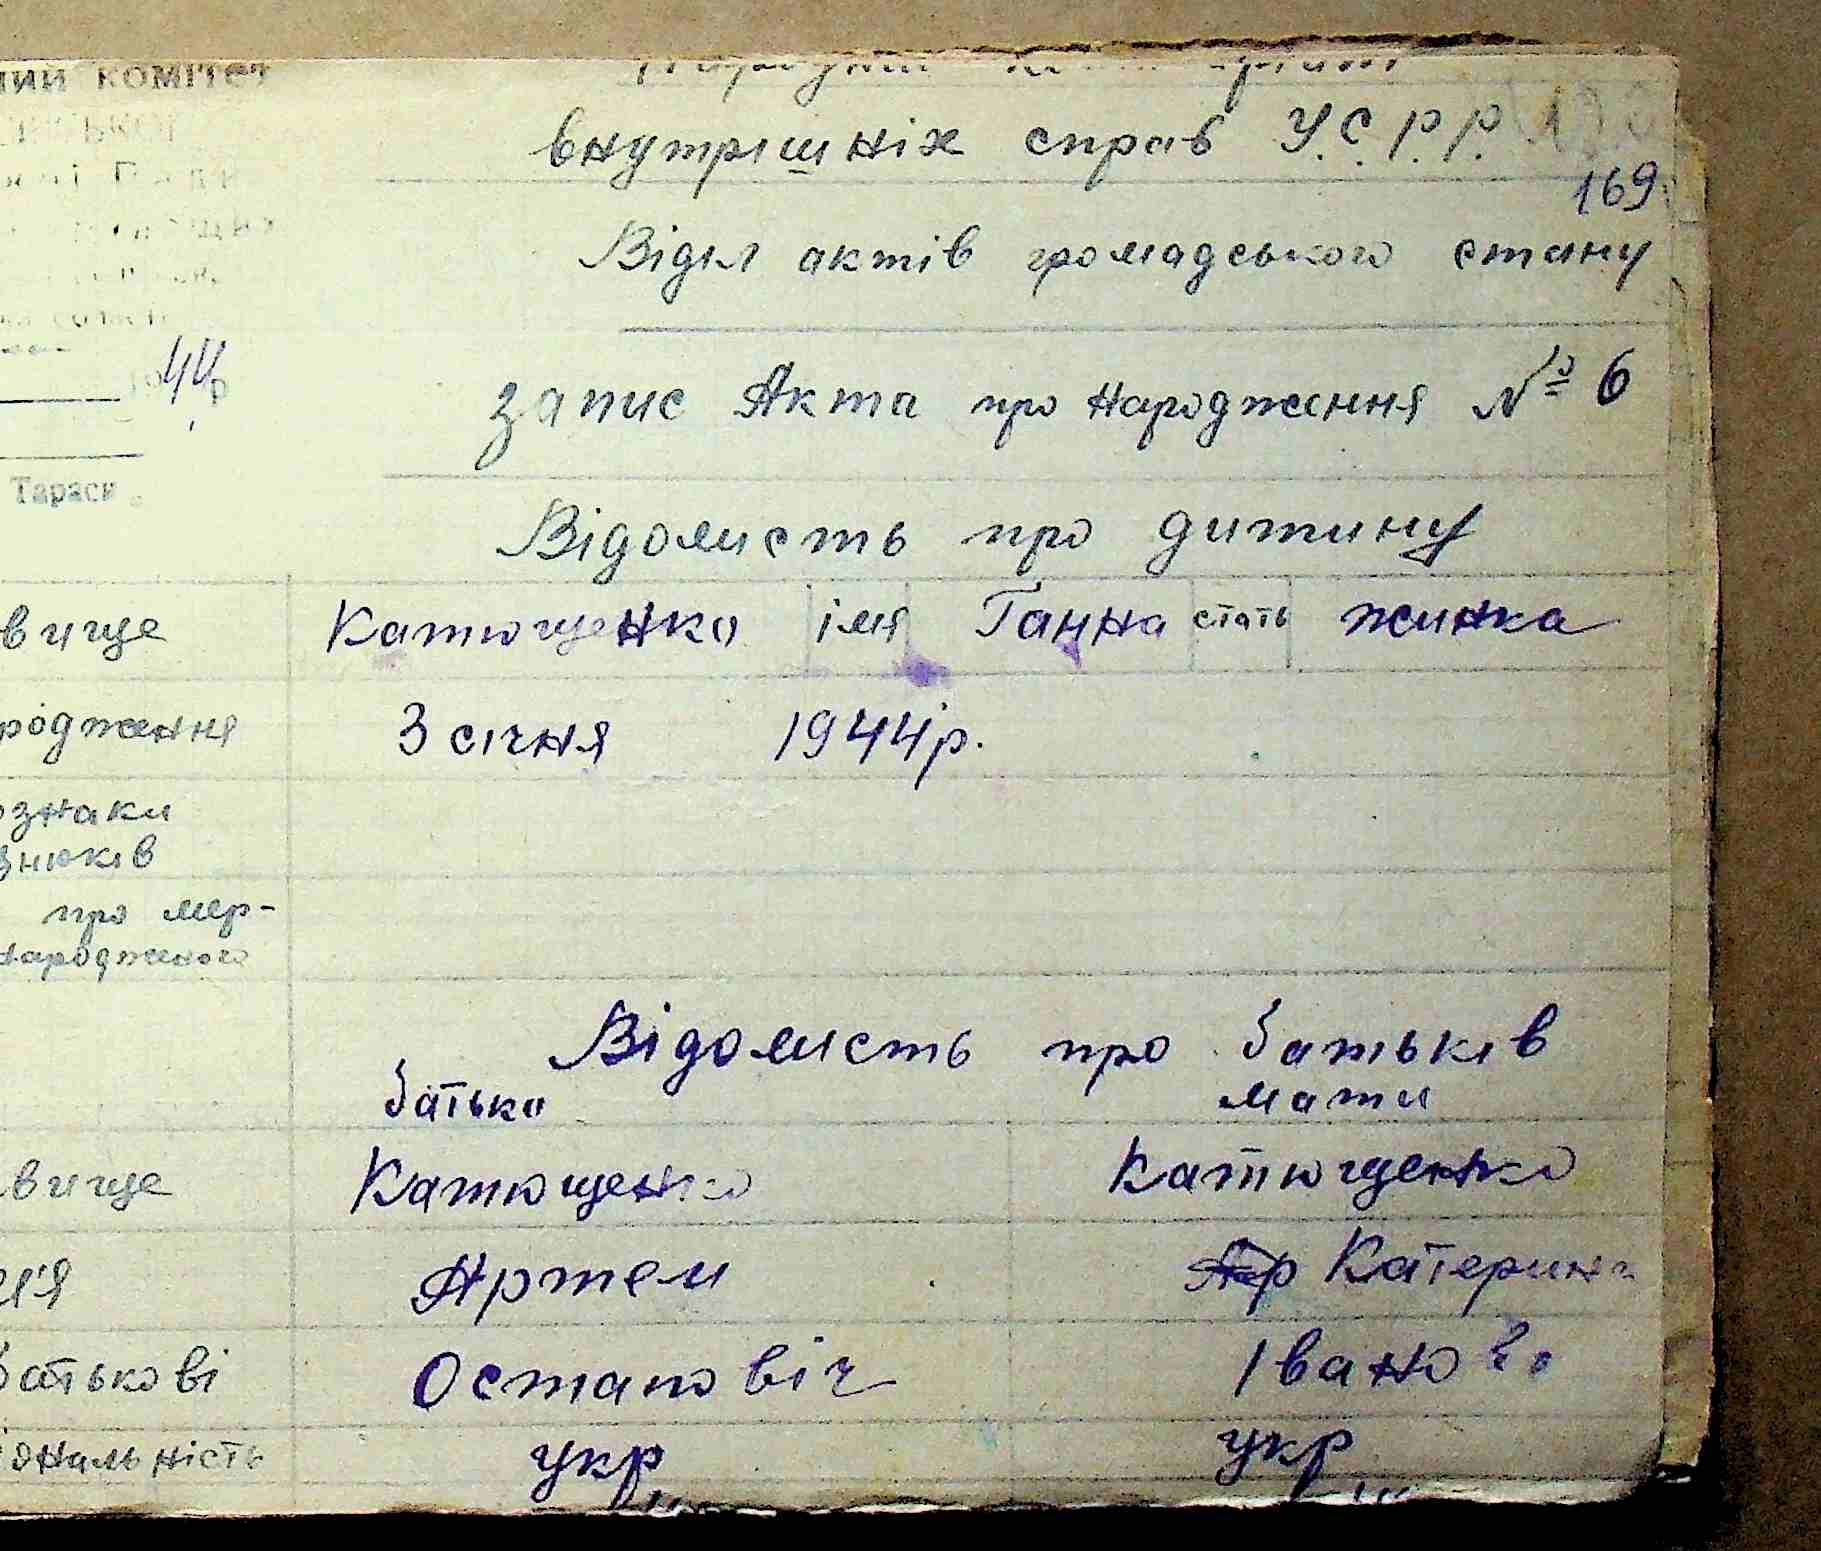 комітет
внутрішніх справ У.С.Р.Р.
169.
Віділ актів громадського стану
44 р
запис Акта про народження № 6
Тараси
Відомисть про дитину
вище Катющенко імя Ганна стать жинка
родження 3 січня 1944 р.
ознаки
знюків
про мер-
народженого
Відомисть про батьків
батько мати
вище Катющенко Катющенко
м'я Артем Катерина
батькові Остановіч Івано
ональність укр укр